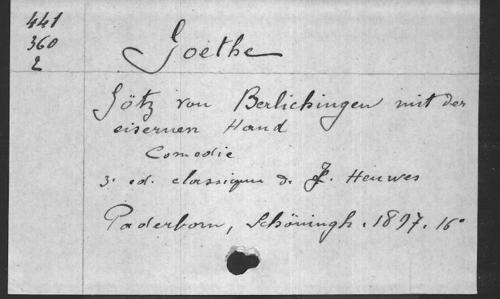 441
360
2
Goethe
Götz von Berlichingen mit der
eisernen Hand
Comedie
3. ed. classique d. J. Heuwes
Paderborn, Schöningh. 1897. 16°